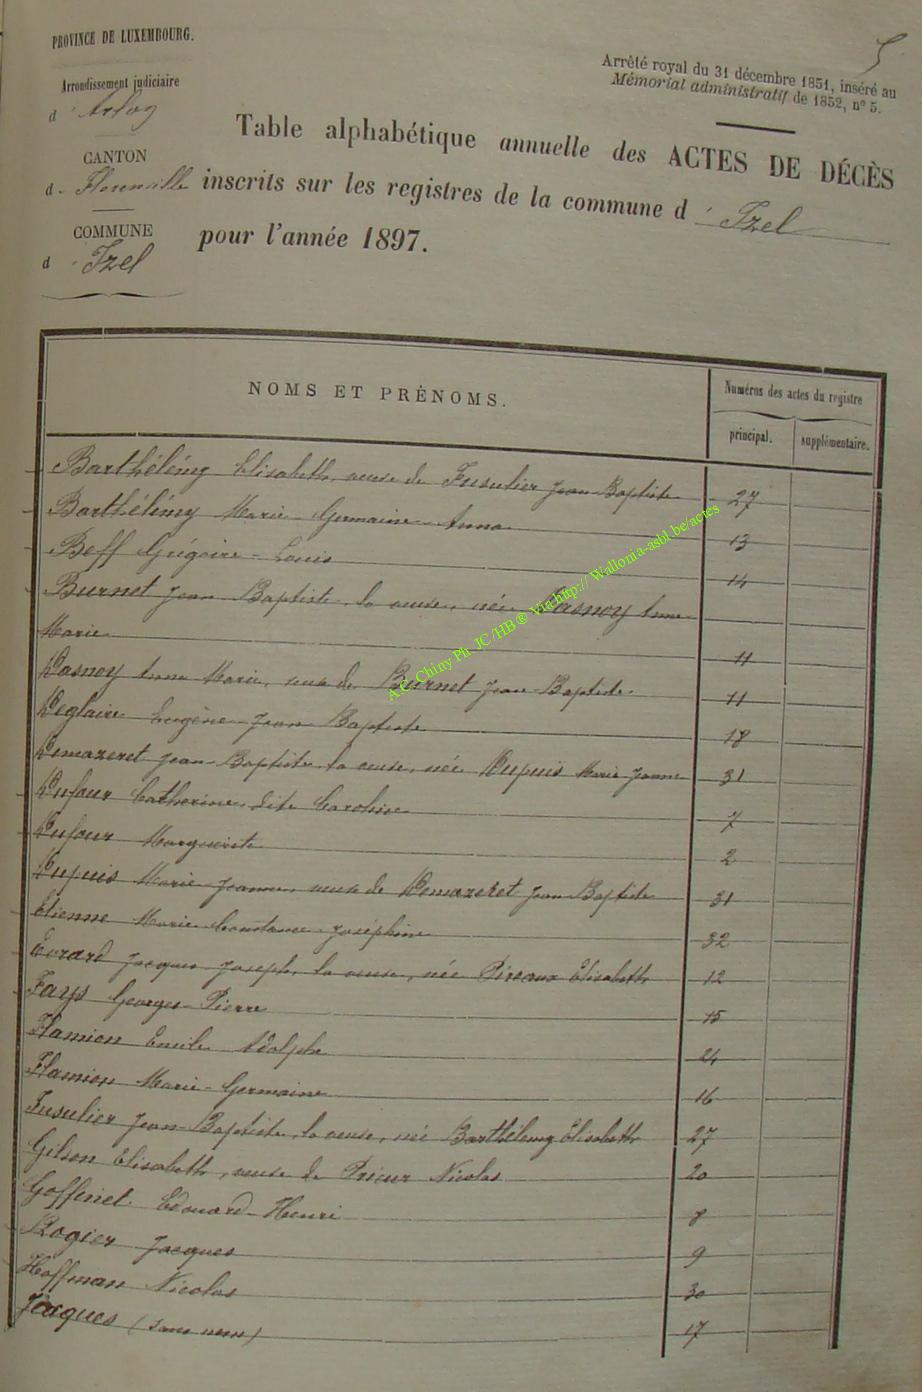 5
PROVINCE DE LUXEMBOURG.
Arrondissement judiciaire
d'Arlon
CANTON
d. Florenville
COMMUNE
d'Izel
Arrêté royal du 31 décembre 1851, inséré au
Mémorial administratif de 1852, n° 5.
Table alphabétique annuelle des ACTES DE DÉCÈS
inscrits sur les registres de la commune d'Izel
pour l'année 1897.
NOMS ET PRÉNOMS.
Numéros des actes du registre
principal. supplémentaire.
Barthélémy Elisabeth, veuve de Fusulier Jean Baptiste 27
Barthélémy Marie Germaine Anna 13
Beff Grégoire-Louis 14
Burnet Jean Baptiste, la veuve, née Dasnoy Anne
Marie 11
Dasnoy Anne Marie, veuve de Burnet Jean-Baptiste 11
Deglaire Eugène Jean Baptiste 18
Demazeret Jean-Baptiste la veuve, née Dupuis Marie Jeanne 31
Dufour Catherine, dite Caroline 7
Dufour Marguerite 2
Dupuis Marie-Jeanne veuve de Demazeret Jean-Baptiste 31
Etienne Marie Constance Joséphine 32
Evrard Jacques Joseph, la veuve, née Pireaux Elisabeth 12
Fays Georges-Pierre 15
Flamion Emile Adolphe 24
Flamion Marie-Germaine 16
Fusulier Jean-Baptiste, la veuve, née Barthélemy Elisabeth 27
Gilson Elisabeth, veuve de Prieur Nicolas 20
Goffinet Edouard-Henri 8
Rogier Jacques 9
Hoffman Nicolas 30
Jacques (sans nom) 17
A.C. Chiny Ph JC/HB® Via http:// Wallonia-asbl.be/actes